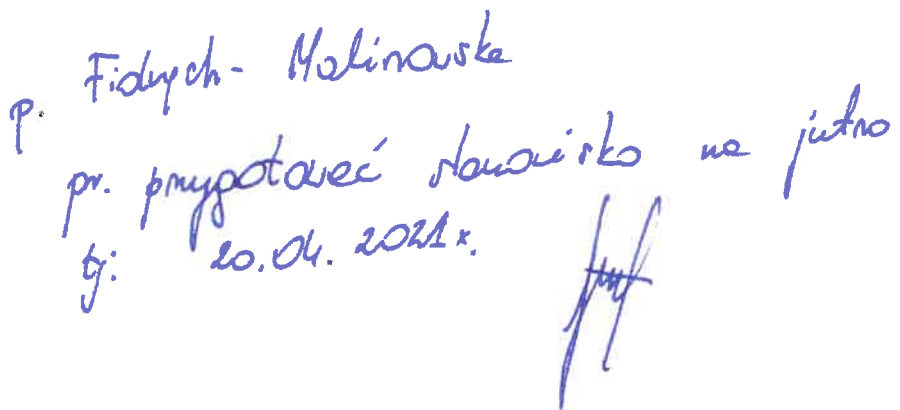 p. Fidrych-Malinowska
pr. przygotować stanowisko na jutro
tj: 20.04.2021r.